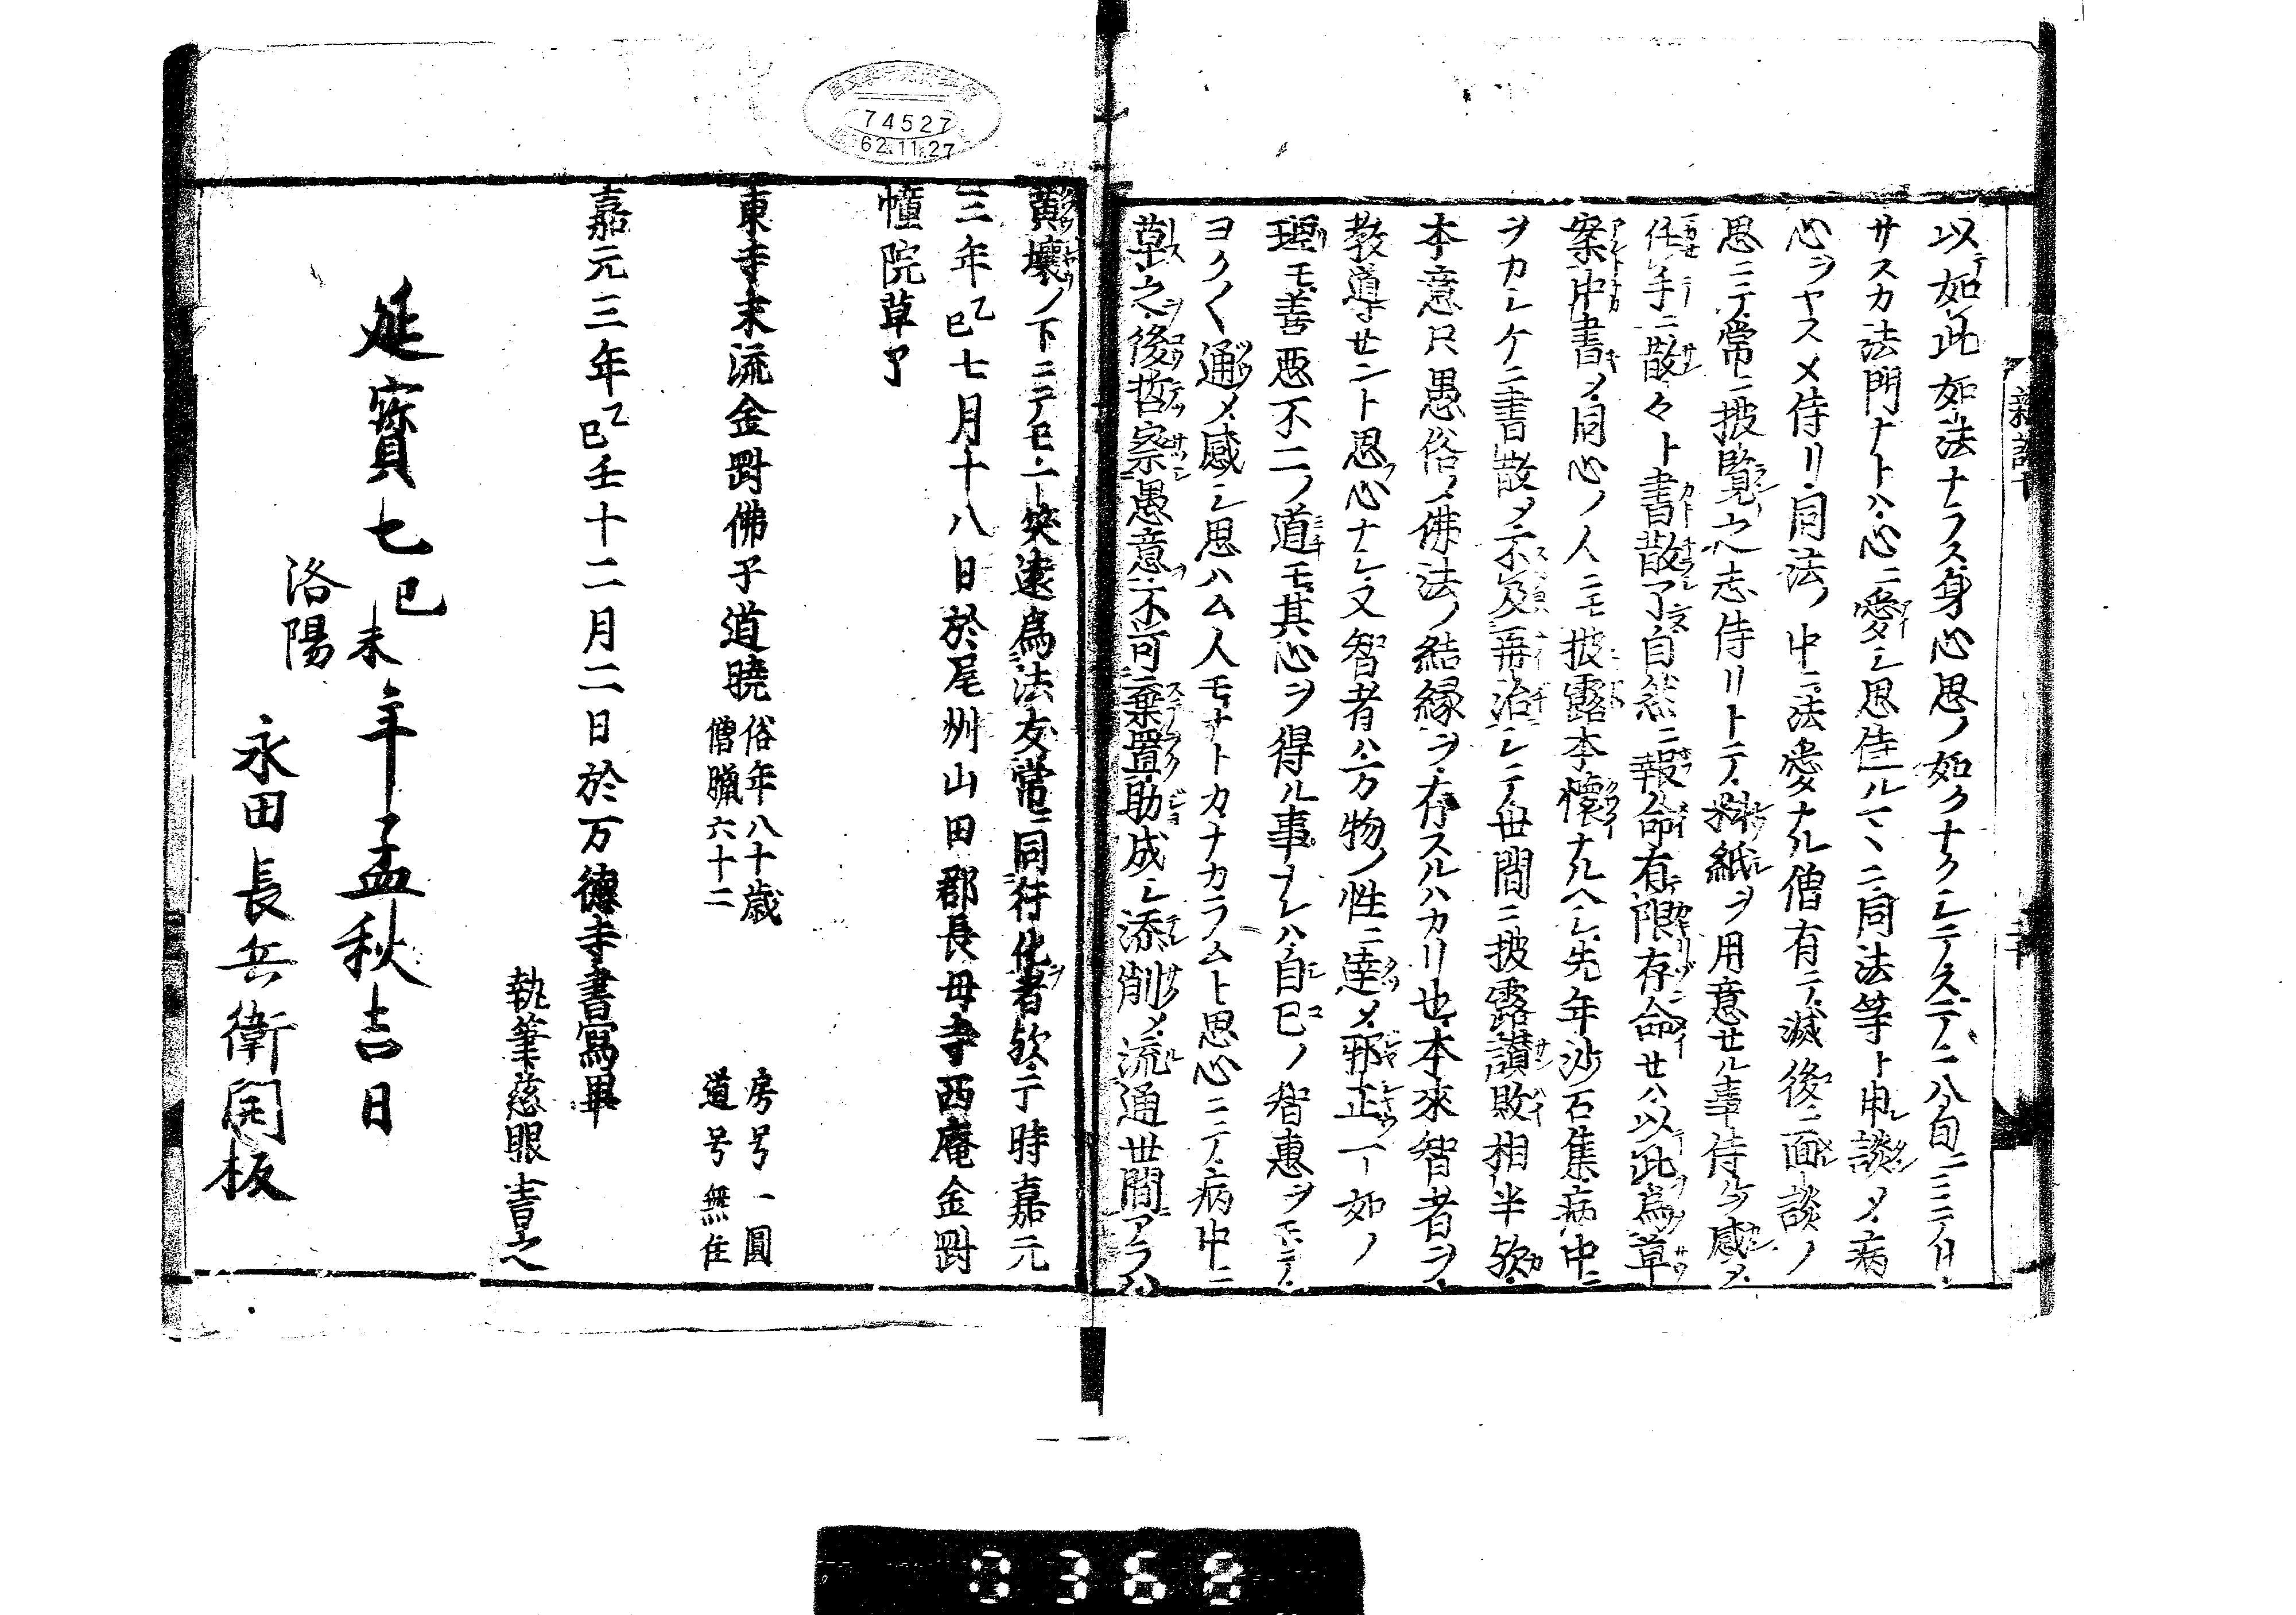 以如此如法ナラス身心思ノ如クナクシテスデニ八旬ニミテリ
サスカ法門ナトハ心ニ愛シ思侍ルマヽニ同法等ト申談メ病
心ヲヤスメ侍リ同法ノ中ニ法愛ナル僧有テ滅後ニ面談ノ
思ニテ常ニ披覧之志侍リトテ料紙ヲ用意セル事侍ケ感メ
任手ニ散々ト書散了自然ニ報命有限存命セハ以此為草
案中書メ同心ノ人ニモ披露本懐ナルヘシ先年沙石集病中ニ
ヲカシケニ書散メ不及再治シテ世間ニ披露讃敗相半欤
本意只愚俗ノ佛法ノ結縁ヲ存スルハカリ也本來智者ヲ
教導セント思心ナシ又智者ハ万物ノ性ニ達メ邪正一如ノ
理モ善悪不二ノ道モ其心ヲ得ル事ナレハ自己ノ智惠ヲモテ
ヨク〱通メ感シ思ハム人モナトカナカラムト思心ニテ病中ニ
草之後哲察愚意不可棄置助成シ添削メ流通世間アラハ
黄壤ノ下ニテモ一咲遠為法友常同行化者欤于時嘉元
三年乙巳七月十八日於尾州山田郡長母寺西庵金剛
幢院草了
東寺末流金剛佛子道曉 俗年八十歳 僧臘六十二 房号一圓 道号無住
嘉元三年乙巳壬十二月二日於万德寺書寫畢
執筆慈眼書之
延寳七己未年孟秋吉日
洛陽
永田長兵衛開板
雜談十
74527
62.11.27
0368